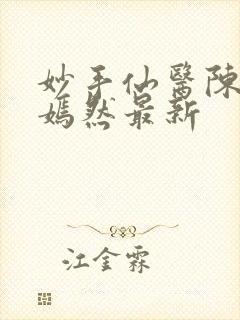 妙手仙醫陳
嫣然最新
江金霖